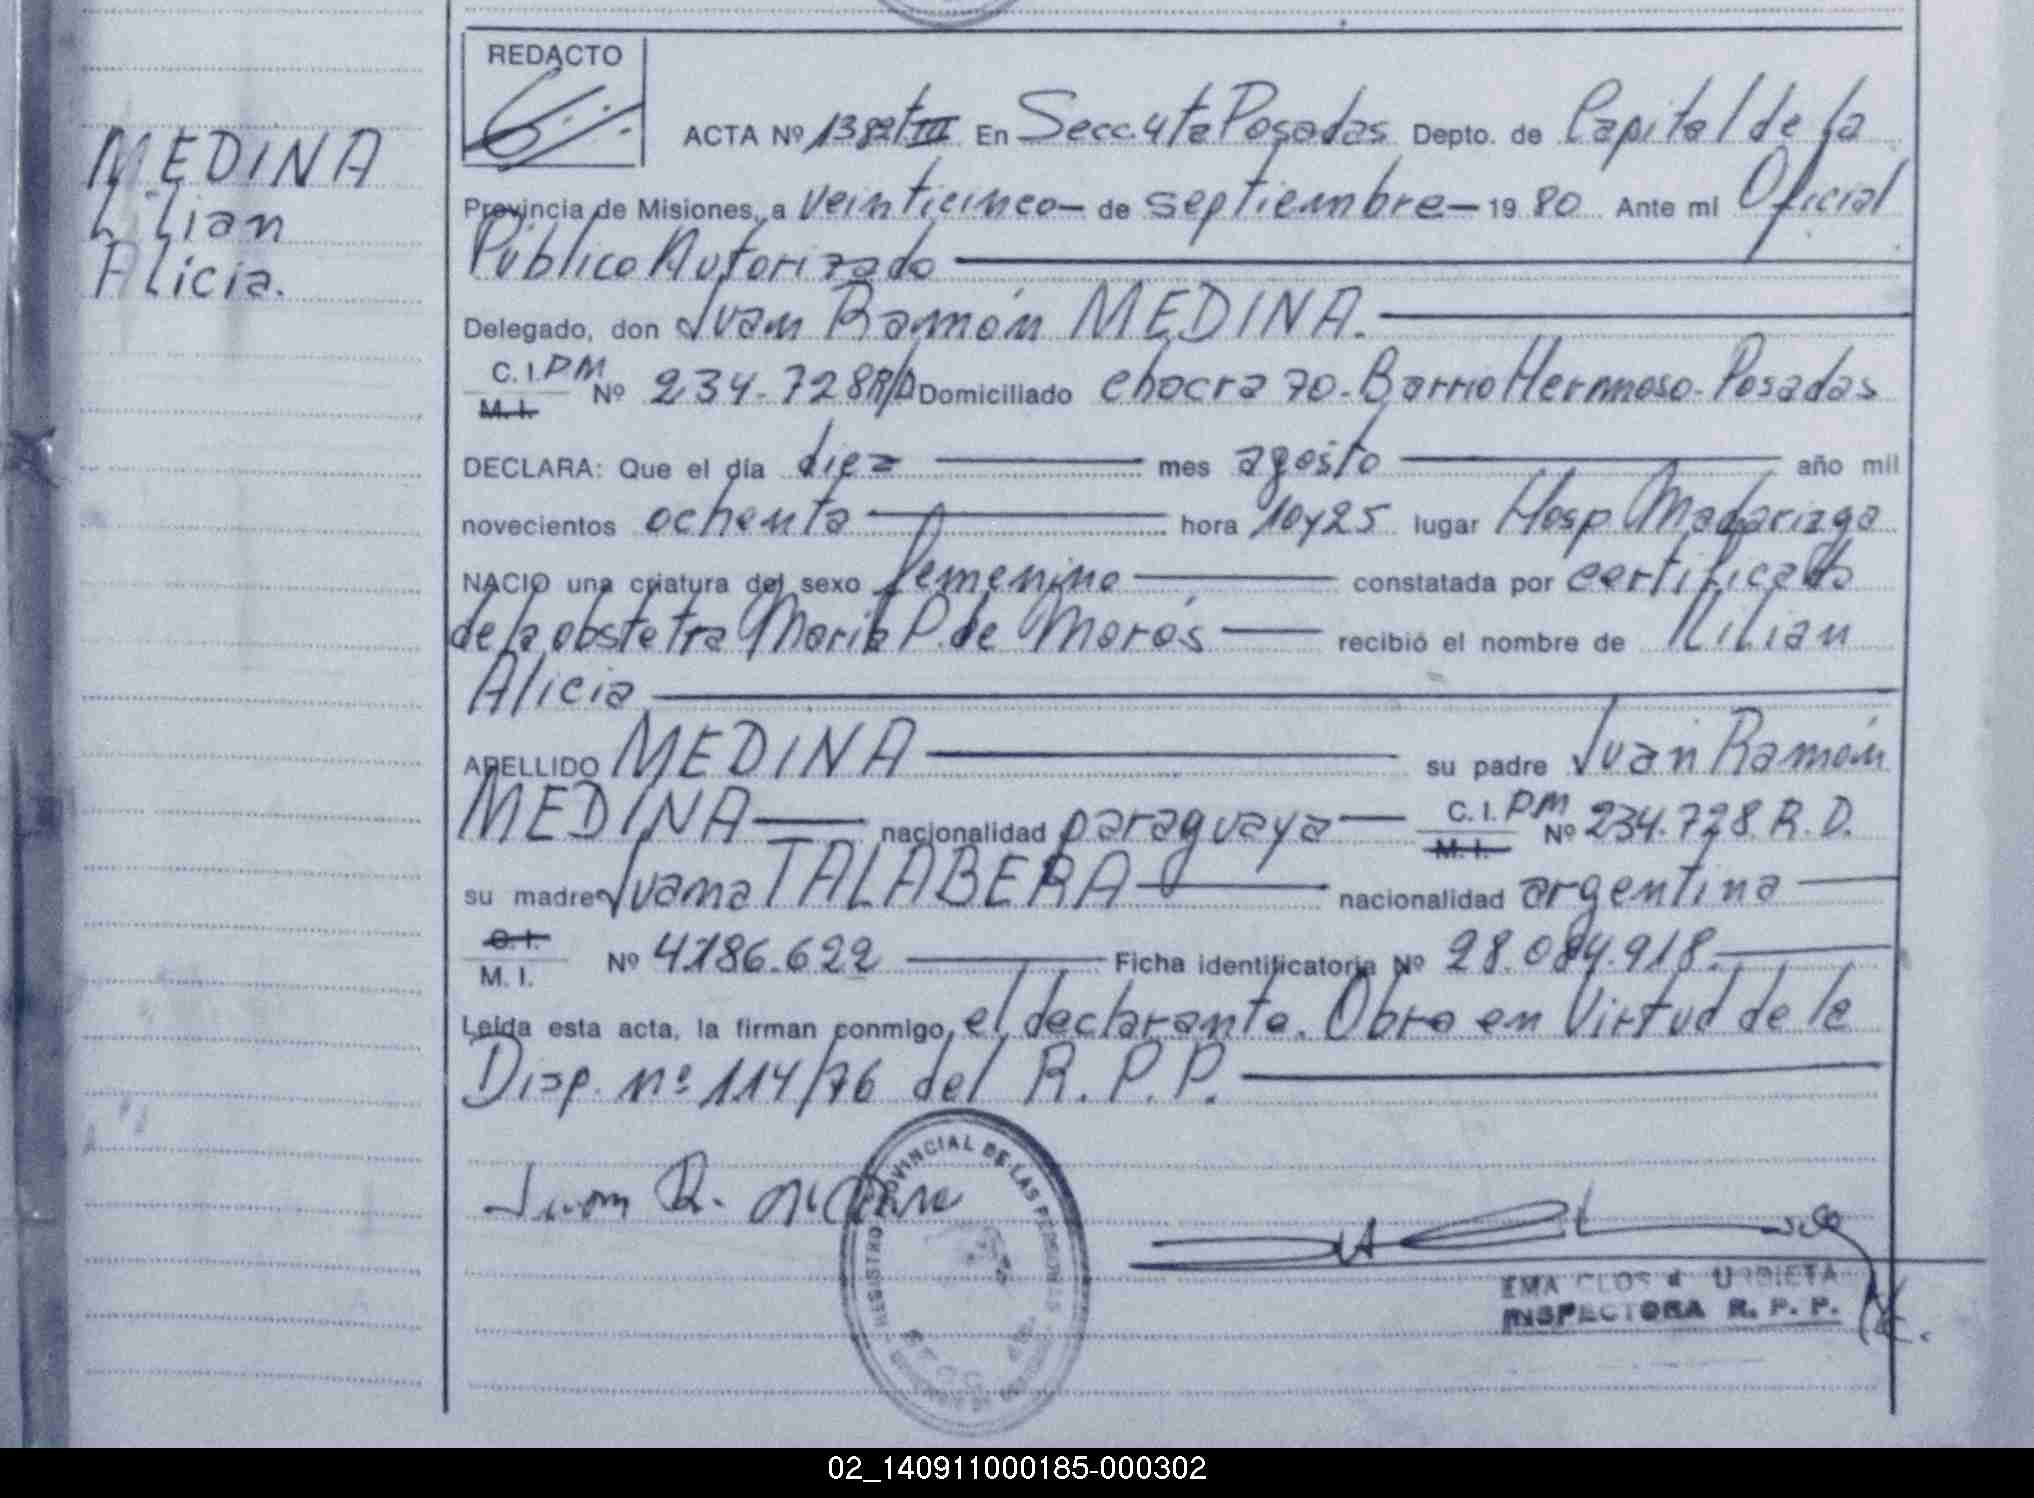 MEDINA
Lilian
Alicia.
REDACTO
ACTA Nº 1382 tº III En Secc. 4ta Posadas Depto. de Capital de la
Provincia de Misiones, a veinticinco — de septiembre — 19 80 Ante mi Oficial
Público Autorizado
Delegado, don Juan Ramón MEDINA.
C. I. PM
M. I. Nº 234.728 R/D Domiciliado chacra 70 - Barrio Hermoso - Posadas
DECLARA: Que el día diez mes agosto año mil
novecientos ochenta hora 10 y 25 lugar Hosp. Madariaga
NACIO una criatura del sexo femenino constatada por certificado
de la obstetra María P. de Morás recibió el nombre de Lilian
Alicia
APELLIDO MEDINA su padre Juan Ramón
MEDINA nacionalidad paraguaya C. I. PM
M. I. Nº 234.728 R. D.
su madre Juana TALABERA nacionalidad argentina
C. I.
M. I. Nº 4.186.622 Ficha identificatoria Nº 28.084.918.
Leída esta acta, la firman conmigo, el declarante. Obra en Virtud de la
Disp. nº 114/76 del R. P. P.
Juan R. Medina
REGISTRO PROVINCIAL DE LAS PERSONAS
EMA CLOS d URBIETA
INSPECTORA R. P. P.
02_140911000185-000302